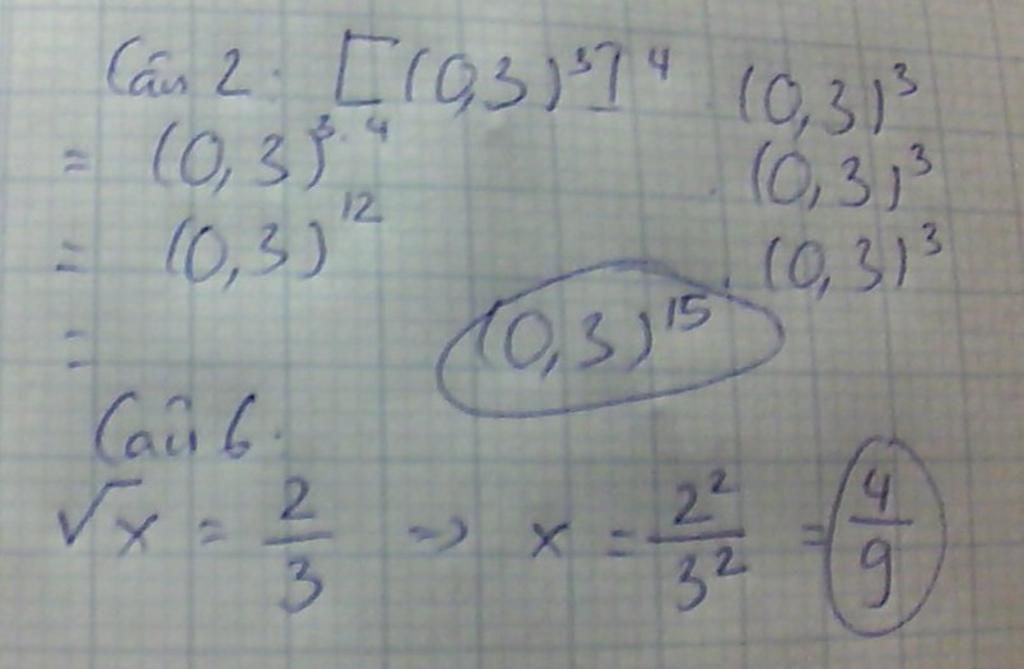 Câu 2: [(0,3)³]⁴ . (0,3)³
= (0,3)³·⁴ . (0,3)³
= (0,3)¹² . (0,3)³
= (0,3)¹⁵
Câu 6.
√x = 2/3 => x = 2²/3² = 4/9